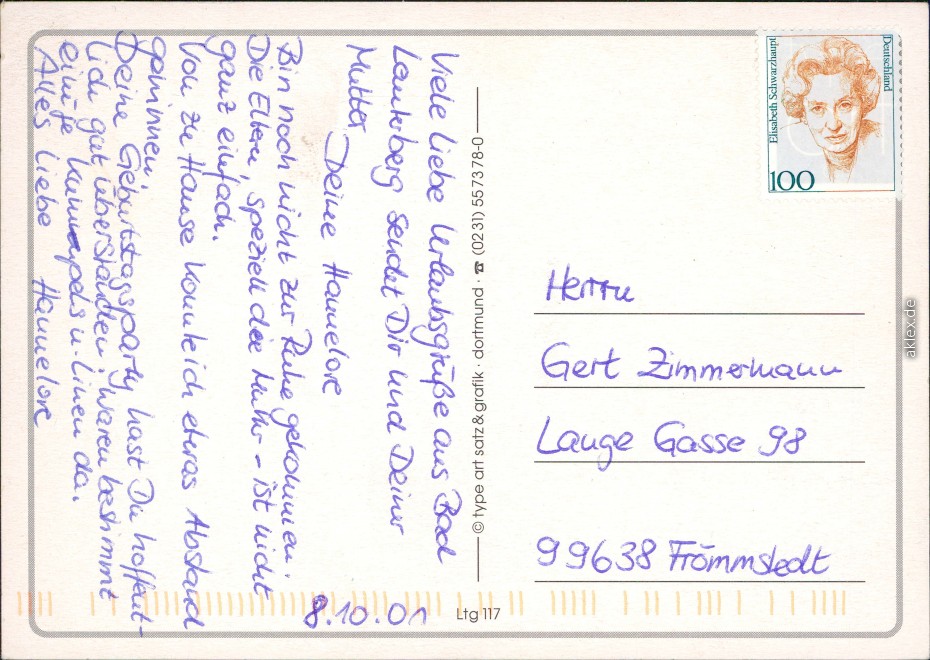 8.10.01
Viele liebe Urlaubsgrüße aus Bad
Lauterberg sendet Dir und Deiner
Mutter
Deine Hannelore
Bin noch nicht zur Ruhe gekommen.
Die Eltern, speziell die Mutter - ist nicht
ganz einfach.
Von zu Hause konnte ich etwas Abstand
gewinnen.
Deine Geburtstagsparty hast Du hoffent-
lich gut überstanden; waren bestimmt
einige Kumpels u. -inen da.
Alles Liebe Hannelore
© type art satz & grafik · dortmund · ☎ (0231) 557378-0
Ltg 117
Deutschland
Elisabeth Schwarzhaupt
100
Herrn
Gert Zimmermann
Lange Gasse 98
99638 Frömmstedt
akleX.de